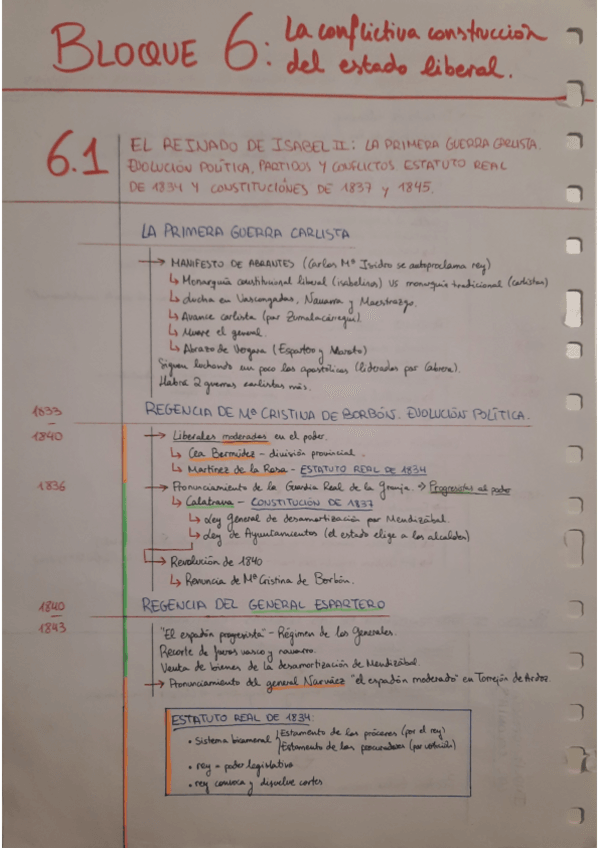 BLOQUE 6: La conflictiva construcción
del estado liberal.
6.1
EL REINADO DE ISABEL II: LA PRIMERA GUERRA CARLISTA.
EVOLUCIÓN POLÍTICA, PARTIDOS Y CONFLICTOS. ESTATUTO REAL
DE 1834 Y CONSTITUCIONES DE 1837 y 1845.
LA PRIMERA GUERRA CARLISTA
→ MANIFESTO DE ABRANTES (Carlos Mª Isidro se autoproclama rey)
↳ Monarquía constitucional liberal (isabelinos) VS monarquía tradicional (carlistas)
↳ Lucha en Vascongadas, Navarra y Maestrazgo.
↳ Avance carlista (por Zumalacárregui).
↳ Muere el general.
↳ Abrazo de Vergara (Espartero y Maroto)
Siguen luchando un poco los apostólicos (liderados por Cabrera).
Habrá 2 guerras carlistas más.
1833
-
1840
REGENCIA DE Mª CRISTINA DE BORBÓN. EVOLUCIÓN POLÍTICA.
→ Liberales moderados en el poder.
↳ Cea Bermúdez - división provincial.
↳ Martínez de la Rosa - ESTATUTO REAL DE 1834
1836
→ Pronunciamiento de la Guardia Real de la Granja. → Progresistas al poder
↳ Calatrava - CONSTITUCIÓN DE 1837
↳ Ley General de desamortización por Mendizábal.
↳ Ley de Ayuntamientos (el estado elige a los alcaldes)
→ Revolución de 1840
↳ Renuncia de Mª Cristina de Borbón.
1840
-
1843
REGENCIA DEL GENERAL ESPARTERO
"El espadón progresista" - Régimen de los Generales.
Recorte de fueros vasco y navarro.
Venta de bienes de la desamortización de Mendizábal.
→ Pronunciamiento del general Narváez "el espadón moderado" en Torrejón de Ardoz.
ESTATUTO REAL DE 1834:
• Sistema bicameral
Estamento de los próceres (por el rey)
Estamento de los procuradores (por votación)
• rey = poder legislativo
• rey convoca y disuelve cortes